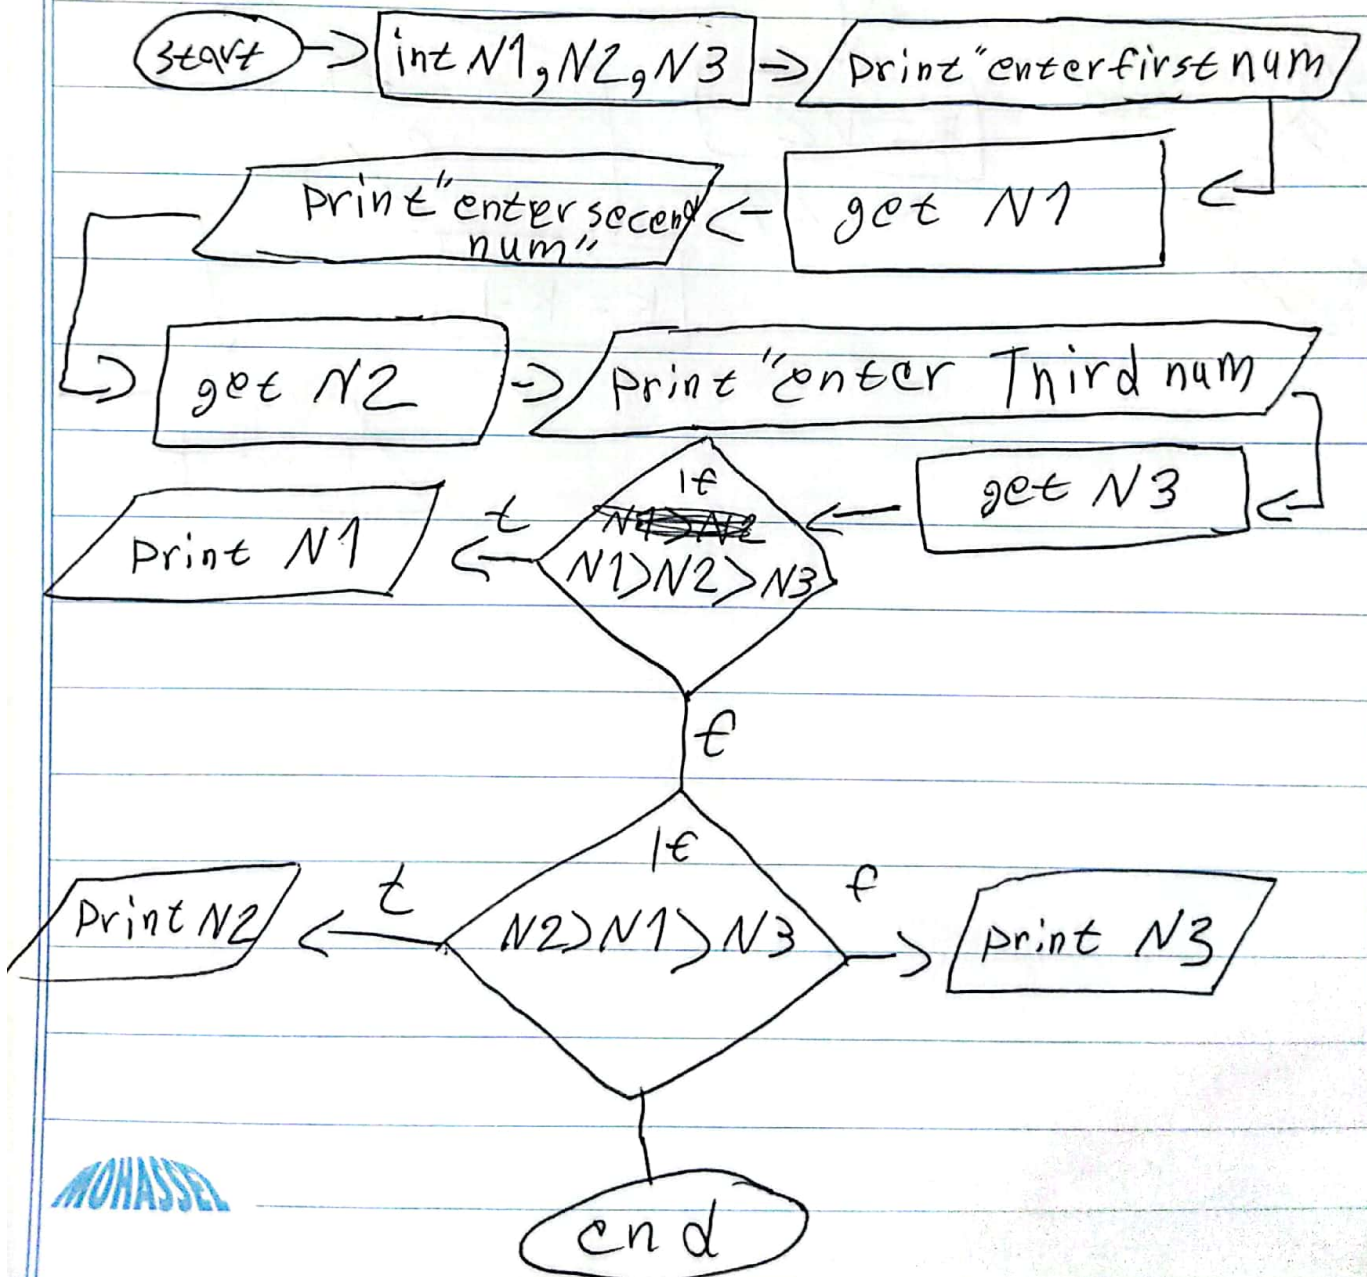 start
int N1,N2,N3
print "enter first num
get N1
print "enter secend
num"
get N2
print "enter Third num
get N3
If
N1>N2
N1>N2>N3
t
print N1
f
If
N2>N1>N3
t
print N2
f
print N3
end
MOHASSEL